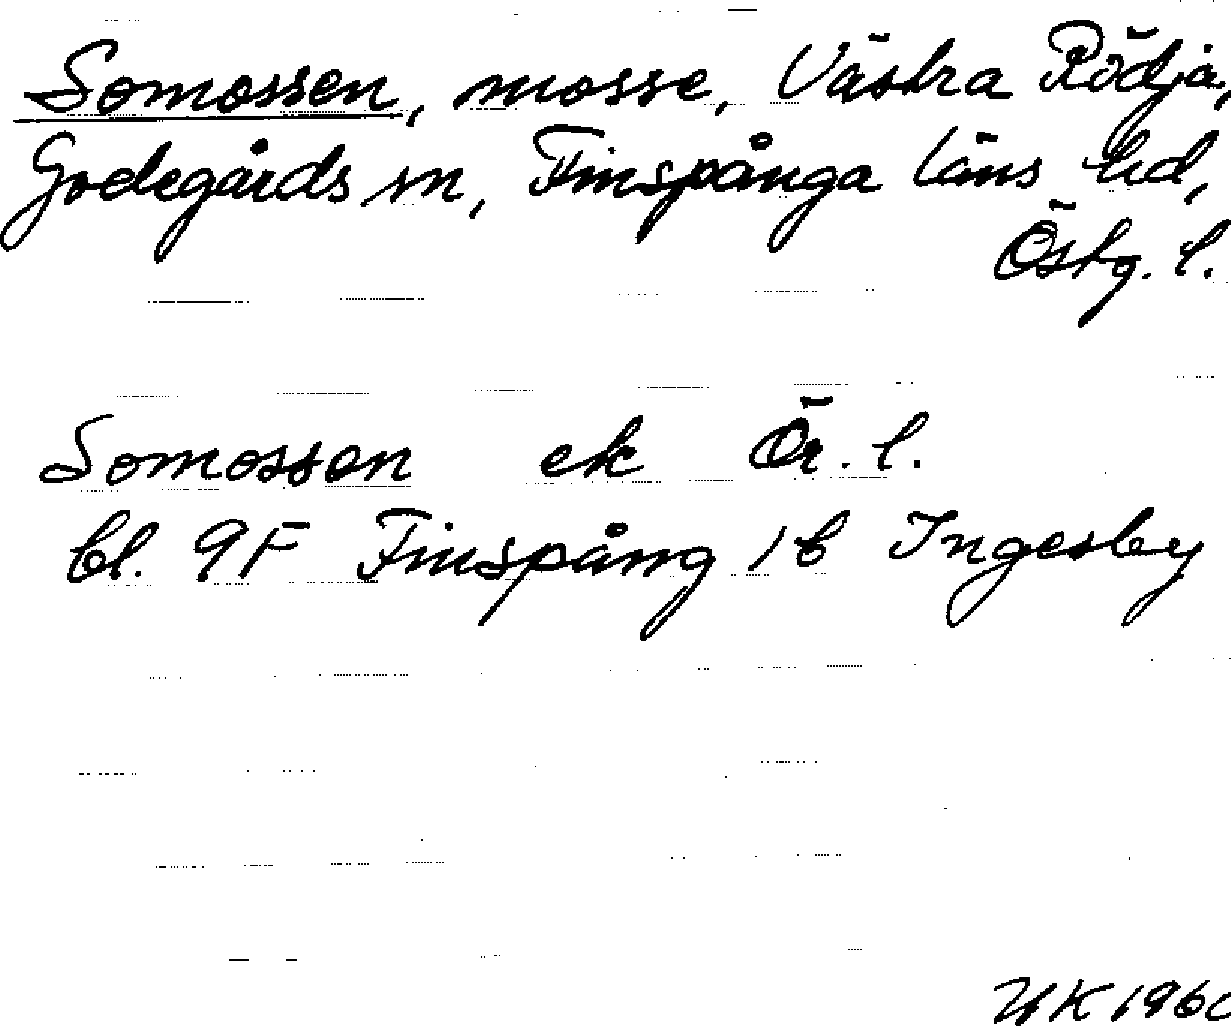 Somossen, mosse, Västra Rödja,
Godegårds sn, Finspånga läns hd,
Östg. l.
Somossen ek Ör. l.
bl. 9F Finspång 1b Ingesby
YK 1960